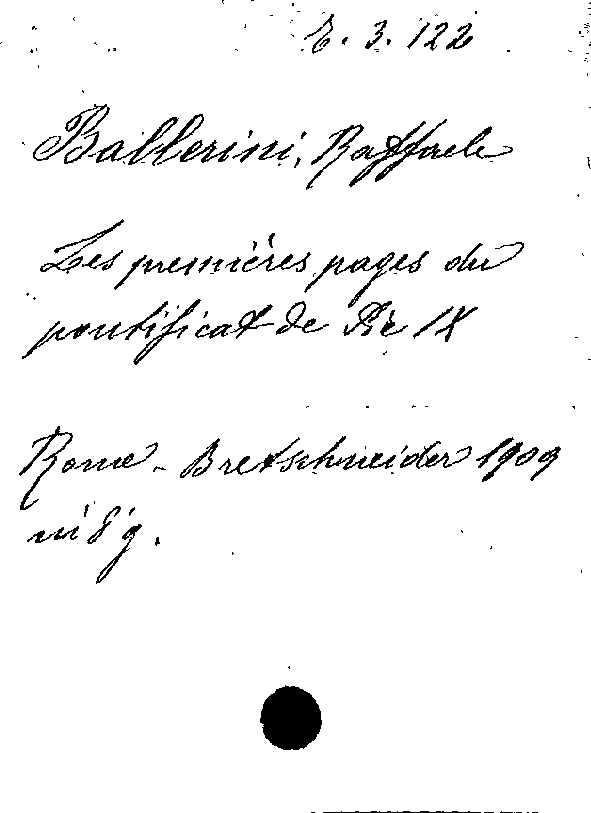 E. 3. 122
Ballerini, Raffaele
Les premières pages du
pontificat de Pie IX
Rome - Bretschneider 1909
in 8° g.